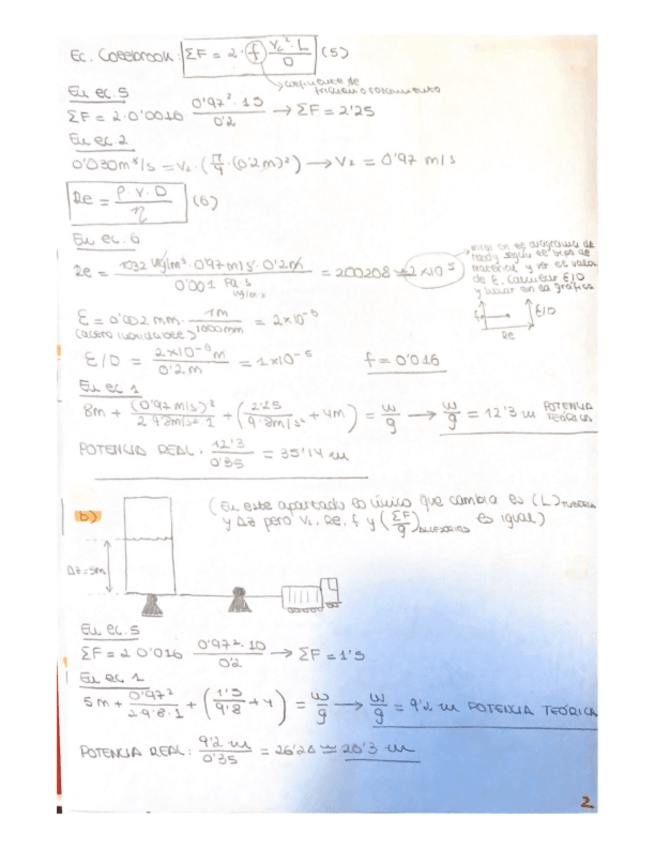 Ec. Coolbrook: ΣF = 2 · f V₂² · L / D (5)
coeficiente de
fricción o rozamiento
En ec. 5
ΣF = 2 · 0'0016 0'97² · 15 / 0'2 → ΣF = 2'25
En ec. 2
0'030 m³/s = V₂ · (π/4 · (0'2 m)²) → V₂ = 0'97 m/s
Re = ρ · V · D / η (6)
En ec. 6
Re = 1032 kg/m³ · 0'97 m/s · 0'2 m / 0'001 Pa · s = 200208 ≈ 2 × 10⁵
kg/m·s
en el diagrama de
Moody según el tipo de
material y ver el valor
de ε. Calcular ε/D
y buscar en la gráfica
f
ε/D
Re
ε = 0'002 mm · 1m / 1000mm = 2×10⁻⁶
(acero inoxidable)
ε/D = 2×10⁻⁶ m / 0'2 m = 1×10⁻⁵ f = 0'016
En ec 1
8m + (0'97 m/s)² / 2 · 9'8 m/s² · 1 + (2'25 / 9'8 m/s² + 4m) = w/g → w/g = 12'3 m POTENCIA TEÓRICA
POTENCIA REAL: 12'3 / 0'35 = 35'14 m
b) (En este apartado lo único que cambia es (L) TUBERÍA
y Δz pero V₂, Re, f y (ΣF/g) ACCESORIOS es igual)
Δz=5m
En ec. 5
ΣF = 2 0'016 0'97² · 10 / 0'2 → ΣF = 1'5
En ec. 1
5m + 0'97² / 2 · 9'8 · 1 + (1'5 / 9'8 + 4) = w/g → w/g = 9'2 m POTENCIA TEÓRICA
POTENCIA REAL: 9'2 m / 0'35 = 26'28 ≈ 26'3 m
2